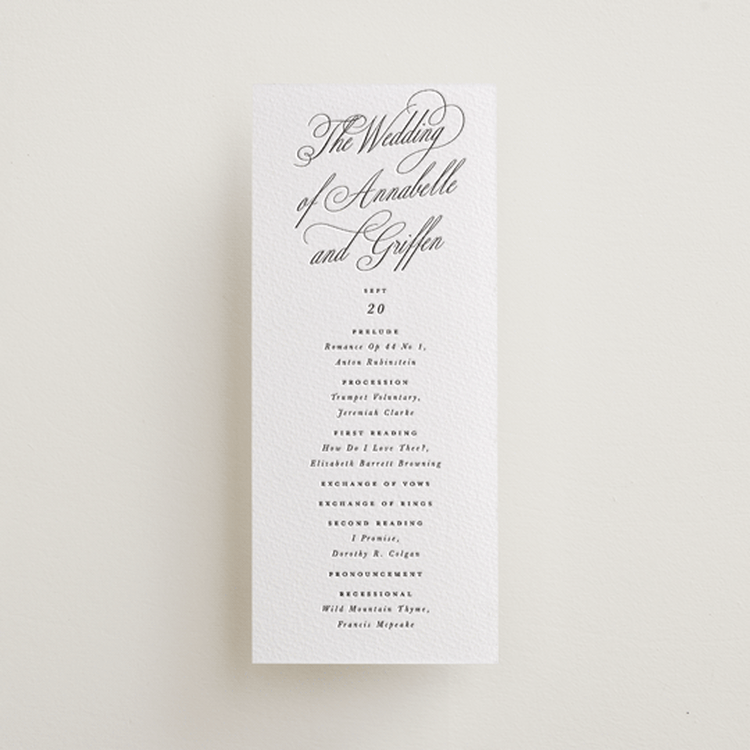 The Wedding
of Annabelle
and Griffen
SEPT
20
PRELUDE
Romance Op 44 No 1,
Anton Rubinstein
PROCESSION
Trumpet Voluntary,
Jeremiah Clarke
FIRST READING
How Do I Love Thee?,
Elizabeth Barrett Browning
EXCHANGE OF VOWS
EXCHANGE OF RINGS
SECOND READING
I Promise,
Dorothy R. Colgan
PRONOUNCEMENT
RECESSIONAL
Wild Mountain Thyme,
Francis Mcpeake